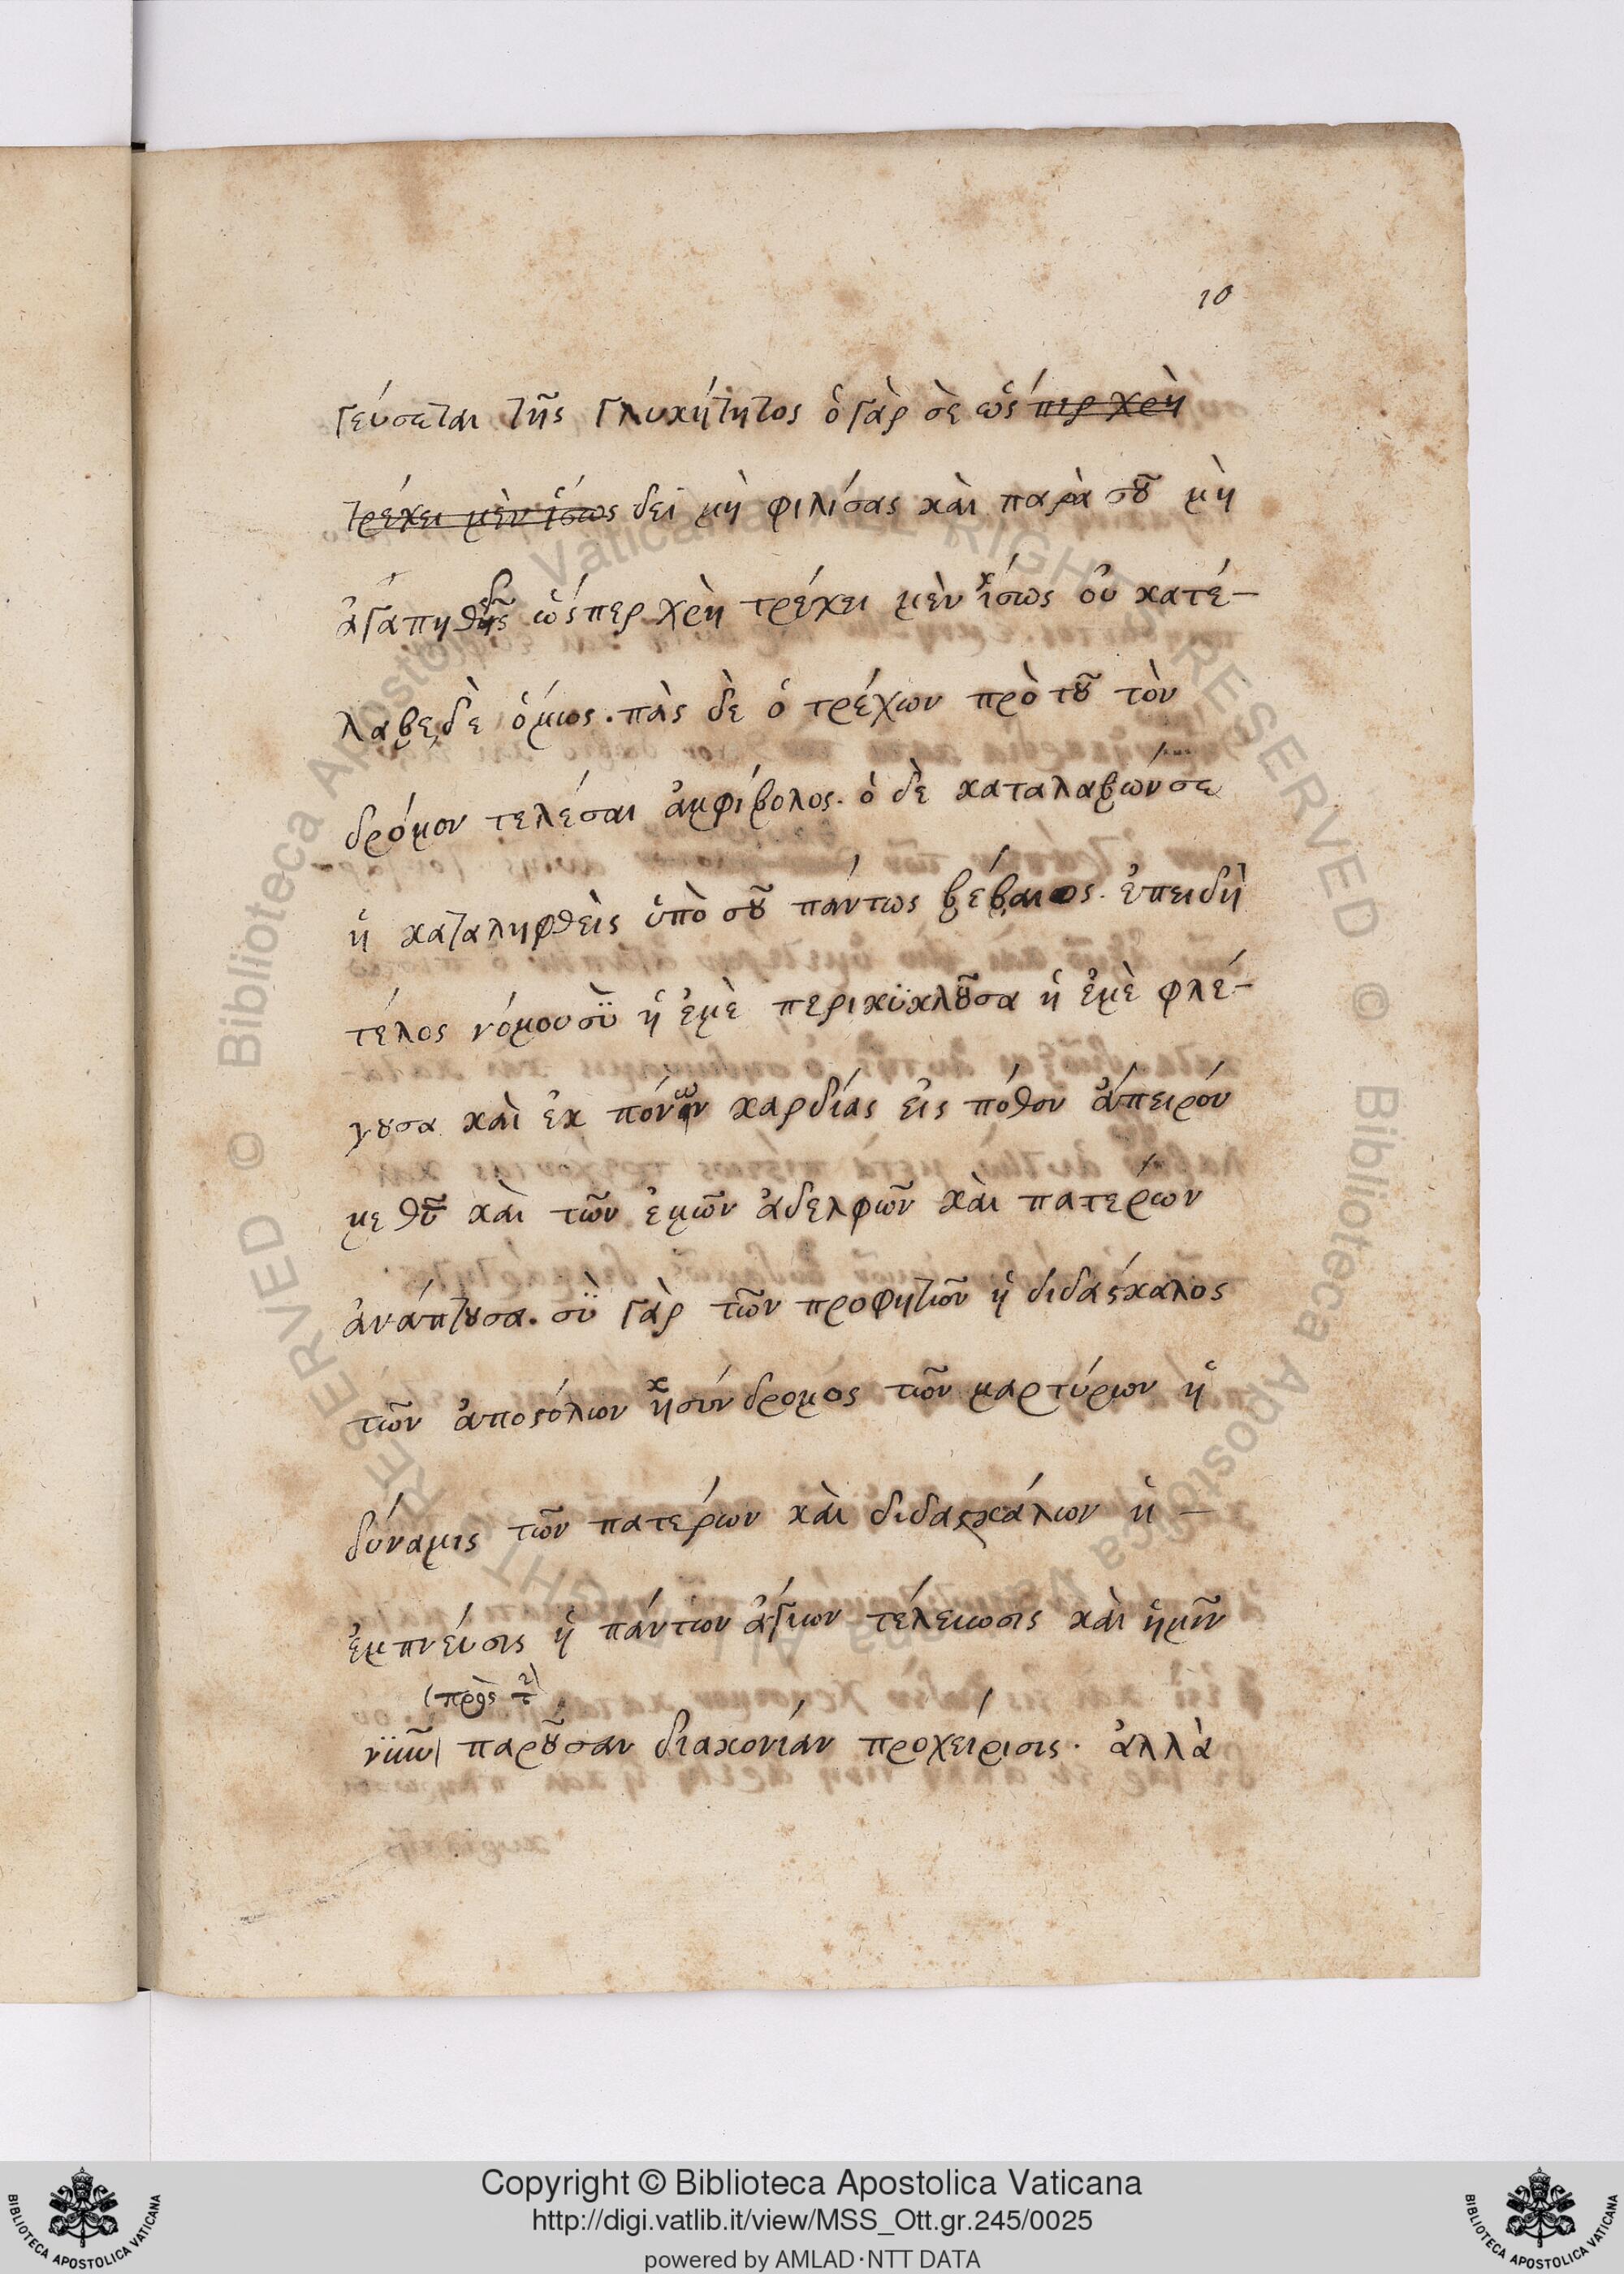 10
γεύσεται τῆς γλυκήτητος ὁ γὰρ σὲ ὥς περ χρὴ
τρέχει μὲν ἴσως δεῖ μὴ φιλίσας καὶ παρὰ σοῦ μὴ
ἀγαπηθῆς ὥς περ χρὴ τρέχει μὲν ἴσως οὐ κατέ-
λαβε δὲ ὅμως. πὰς δὲ ὁ τρέχων πρὸ τοῦ τὸν
δρόμον τελέσαι ἀμφίβολος. ὁ δὲ καταλαβών σε
ἢ καταληφθεὶς ὑπὸ σοῦ πάντως βέβαιος. ἐπειδὴ
τέλος νόμου σὺ ἡ ἐμὲ περικϋκλοῦσα ἡ ἐμὲ φλέ-
γουσα καὶ ἐκ πόνων καρδίας εἰς πόθον ἄπειρόν
με θῦ καὶ τῶν ἐμῶν ἀδελφῶν καὶ πατέρων
ἀνάπτουσα. σὺ γὰρ τῶν προφητῶν ἡ διδάσκαλος
τῶν ἀποστόλων ἡ σύνδρομος τῶν μαρτύρων ἡ
δύναμις τῶν πατέρων καὶ διδασκάλων ἡ -
ἐμπνεύσις ἡ πάντων ἁγίων τέλειωσις καὶ ἡμῶν
(πρὸς τ)
παροῦσαν διακονίαν προχείρισις. ἀλλὰ
Copyright © Biblioteca Apostolica Vaticana
http://digi.vatlib.it/view/MSS_Ott.gr.245/0025
powered by AMLAD·NTT DATA
BIBLIOTECA APOSTOLICA VATICANA
BIBLIOTECA APOSTOLICA VATICANA
© Biblioteca Apostolica Vaticana ALL RIGHT RESERVED
© Biblioteca Apostolica Vaticana ALL RIGHT RESERVED